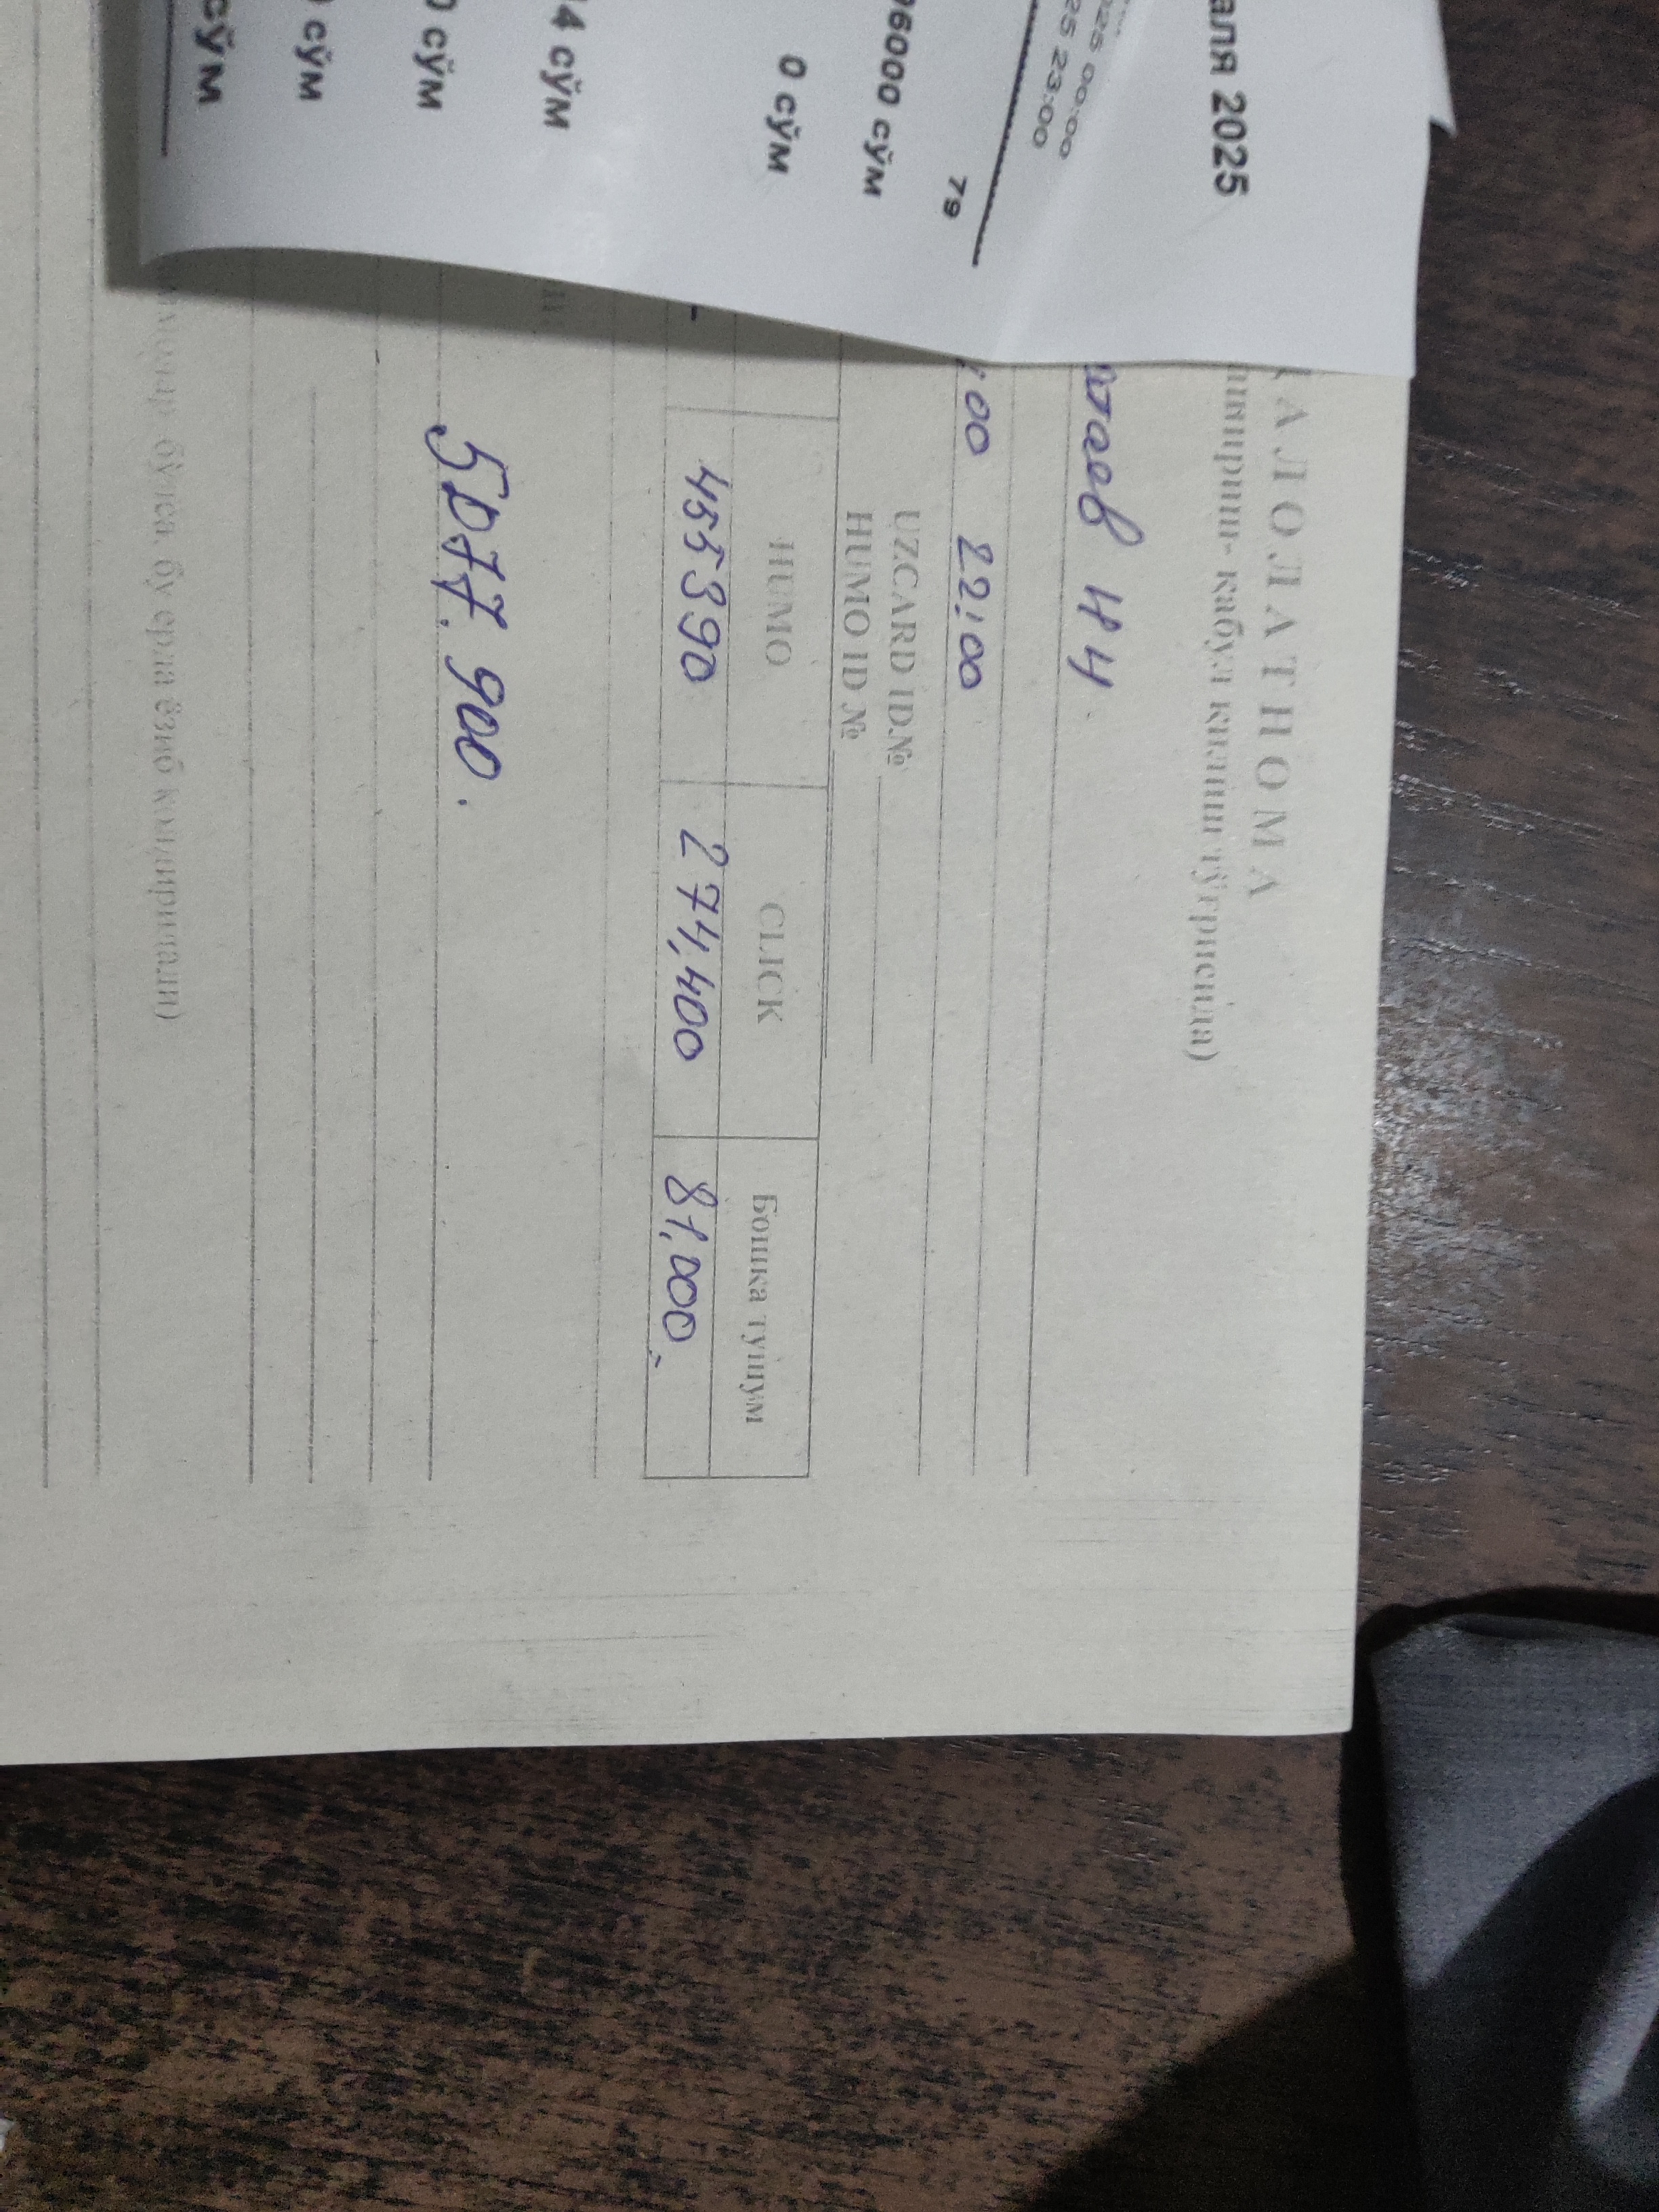 аля 2025
225 00:00
25 23:00
79
96000 сўм
0 сўм
4 сўм
0 сўм
сўм
сўм
АЛОЛАТНОМА
қабул қилиш тўғрисида)
Н Ч
:00 22:00
UZCARD ID№
HUMO ID №
HUMO CLICK Бошка тушум
455390 274,400 81,000
5077.900.
бўлса бу ерда ёзиб қолдирилади)